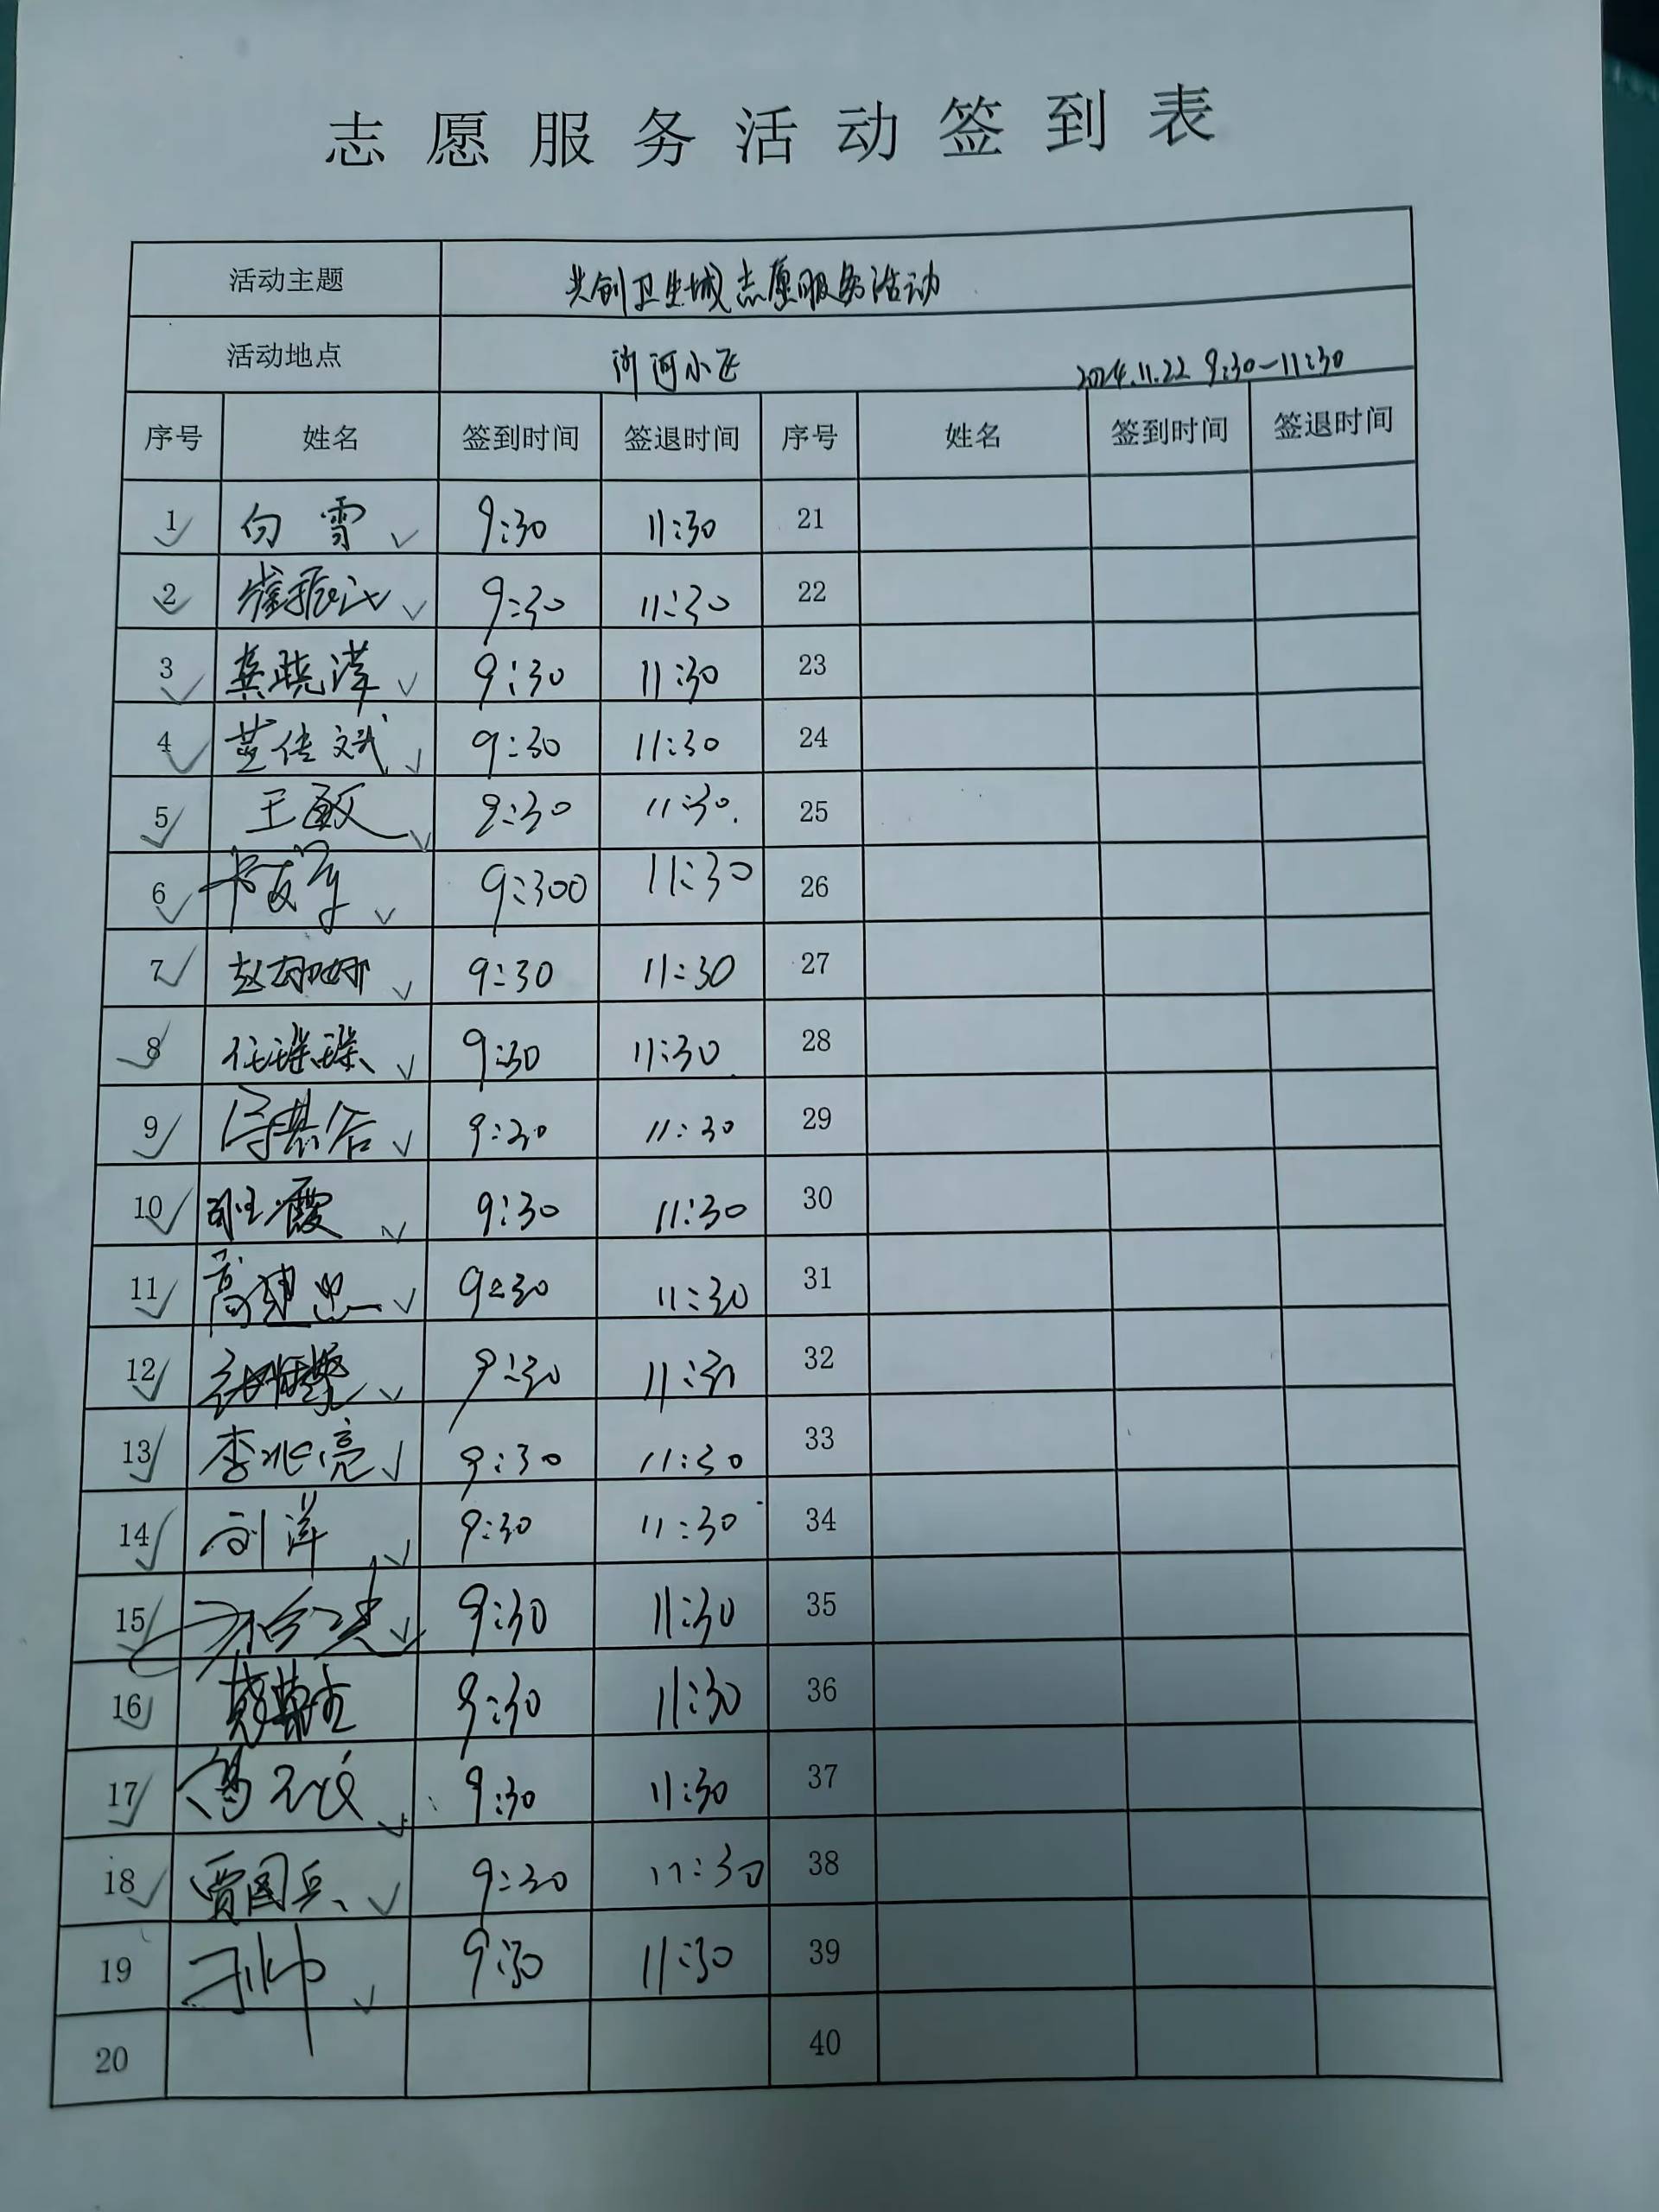 志愿服务活动签到表
活动主题 共创卫生城志愿服务活动
活动地点 河小区 2024.11.22 9:30-11:30
序号 姓名 签到时间 签退时间 序号 姓名 签到时间 签退时间
1 白雪 9:30 11:30 21
2 9:30 11:30 22
3 龚晓洋 9:30 11:30 23
4 9:30 11:30 24
5 王敏 9:30 11:30 25
6 9:300 11:30 26
7 赵娜娜 9:30 11:30 27
8 任璨璨 9:30 11:30 28
9 9:30 11:30 29
10 霞 9:30 11:30 30
11 高建忠 9:30 11:30 31
12 9:30 11:30 32
13 李兆亮 9:30 11:30 33
14 刘洋 9:30 11:30 34
15 9:30 11:30 35
16 9:30 11:30 36
17 9:30 11:30 37
18 贾国兵 9:30 11:30 38
19 9:30 11:30 39
20 40